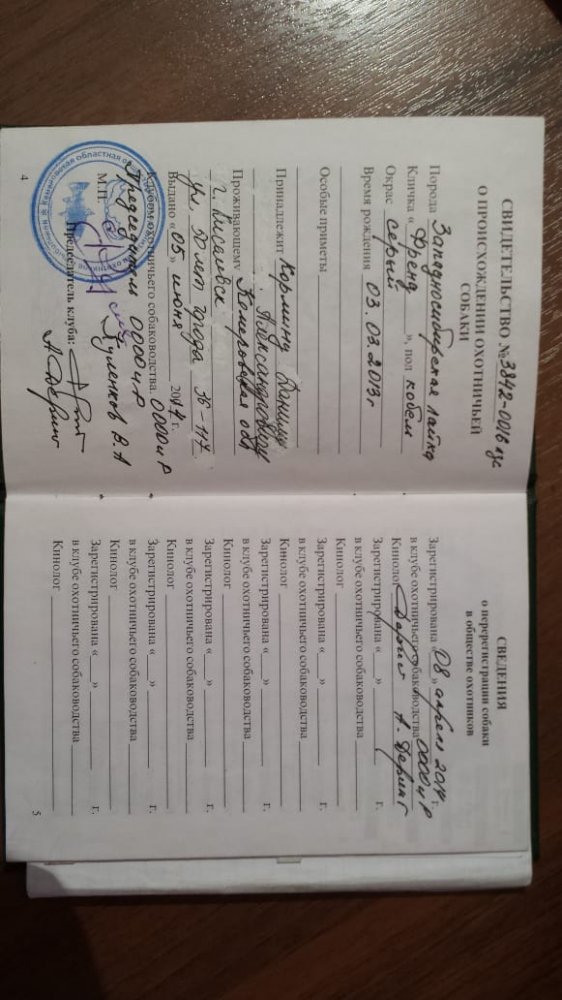 СВИДЕТЕЛЬСТВО №3842-0016
О ПРОИСХОЖДЕНИИ ОХОТНИЧЬЕЙ
СОБАКИ
Порода Западносибирская лайка
Кличка « Френд », пол кобель
Окрас серый
Время рождения 03.03.2013г
Особые приметы
Принадлежит Данилу
Александровичу
Проживающему Кемеровская обл
г. Киселевск
ул. 50 лет города
Выдано « 05 » июня 2014 г.
Клубом охотничьего собаководства. ОООиР
Председатель ОООиР
М.П.
Председатель клуба:
А. Деринг
4
СВЕДЕНИЯ
о перерегистрации собаки
в обществе охотников
Зарегистрирована « 08 » апрель 2014 г.
в клубе охотничьего собаководства ОООиР
Кинолог А. Деринг
Зарегистрирована « » г,
в клубе охотничьего собаководства
Кинолог
Зарегистрирована « » г,
в клубе охотничьего собаководства
Кинолог
Зарегистрирована « » г,
в клубе охотничьего собаководства
Кинолог
Зарегистрирована « » г,
в клубе охотничьего собаководства
Кинолог
Зарегистрирована « » г,
в клубе охотничьего собаководства
Кинолог
Зарегистрирована « » г,
в клубе охотничьего собаководства
Кинолог
5